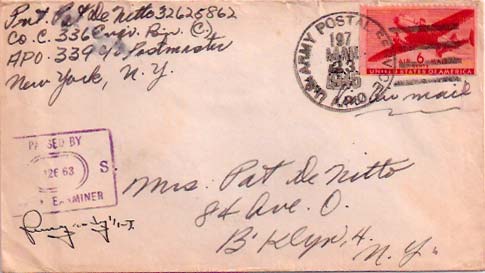 Pvt. Pat De Nitto 32625862
Co. C. 336 Engr. Bn. (C)
APO. 339 c/o Postmaster
New York, N. Y.
U.S. ARMY POSTAL SERVICE
197
APO
AIR 6¢
UNITED STATES OF AMERICA
Via air mail
PASSED BY
U.S.
ARMY EXAMINER
Mrs. Pat De Nitto
84 Ave. O.
B'klyn, 4.
N. Y.